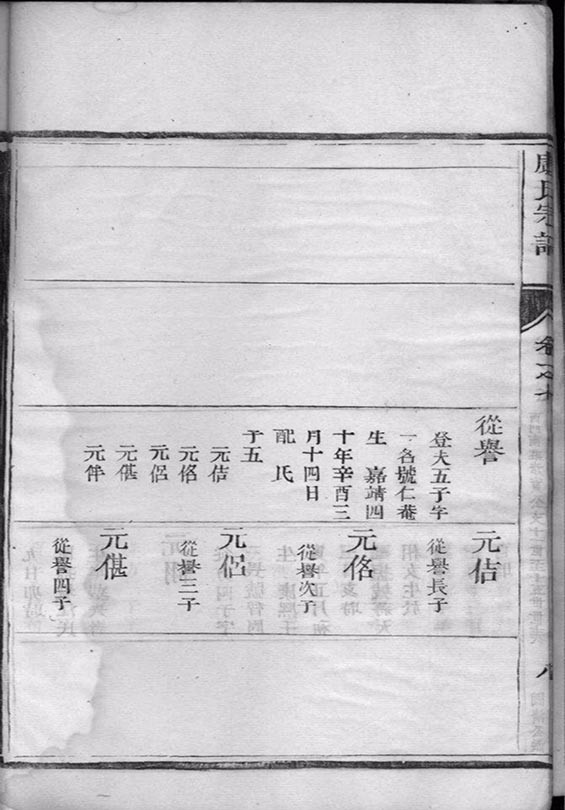 氏宗譜
卷之九
從譽
登夫五子字
一名號仁菴
生 嘉靖四
十年辛酉三
月十四日
配 氏
子五
元佶
元佲
元侶
元偡
元伴
元佶
從譽長子
元佲
從譽次子
元侶
從譽三子
元偡
從譽四子
八